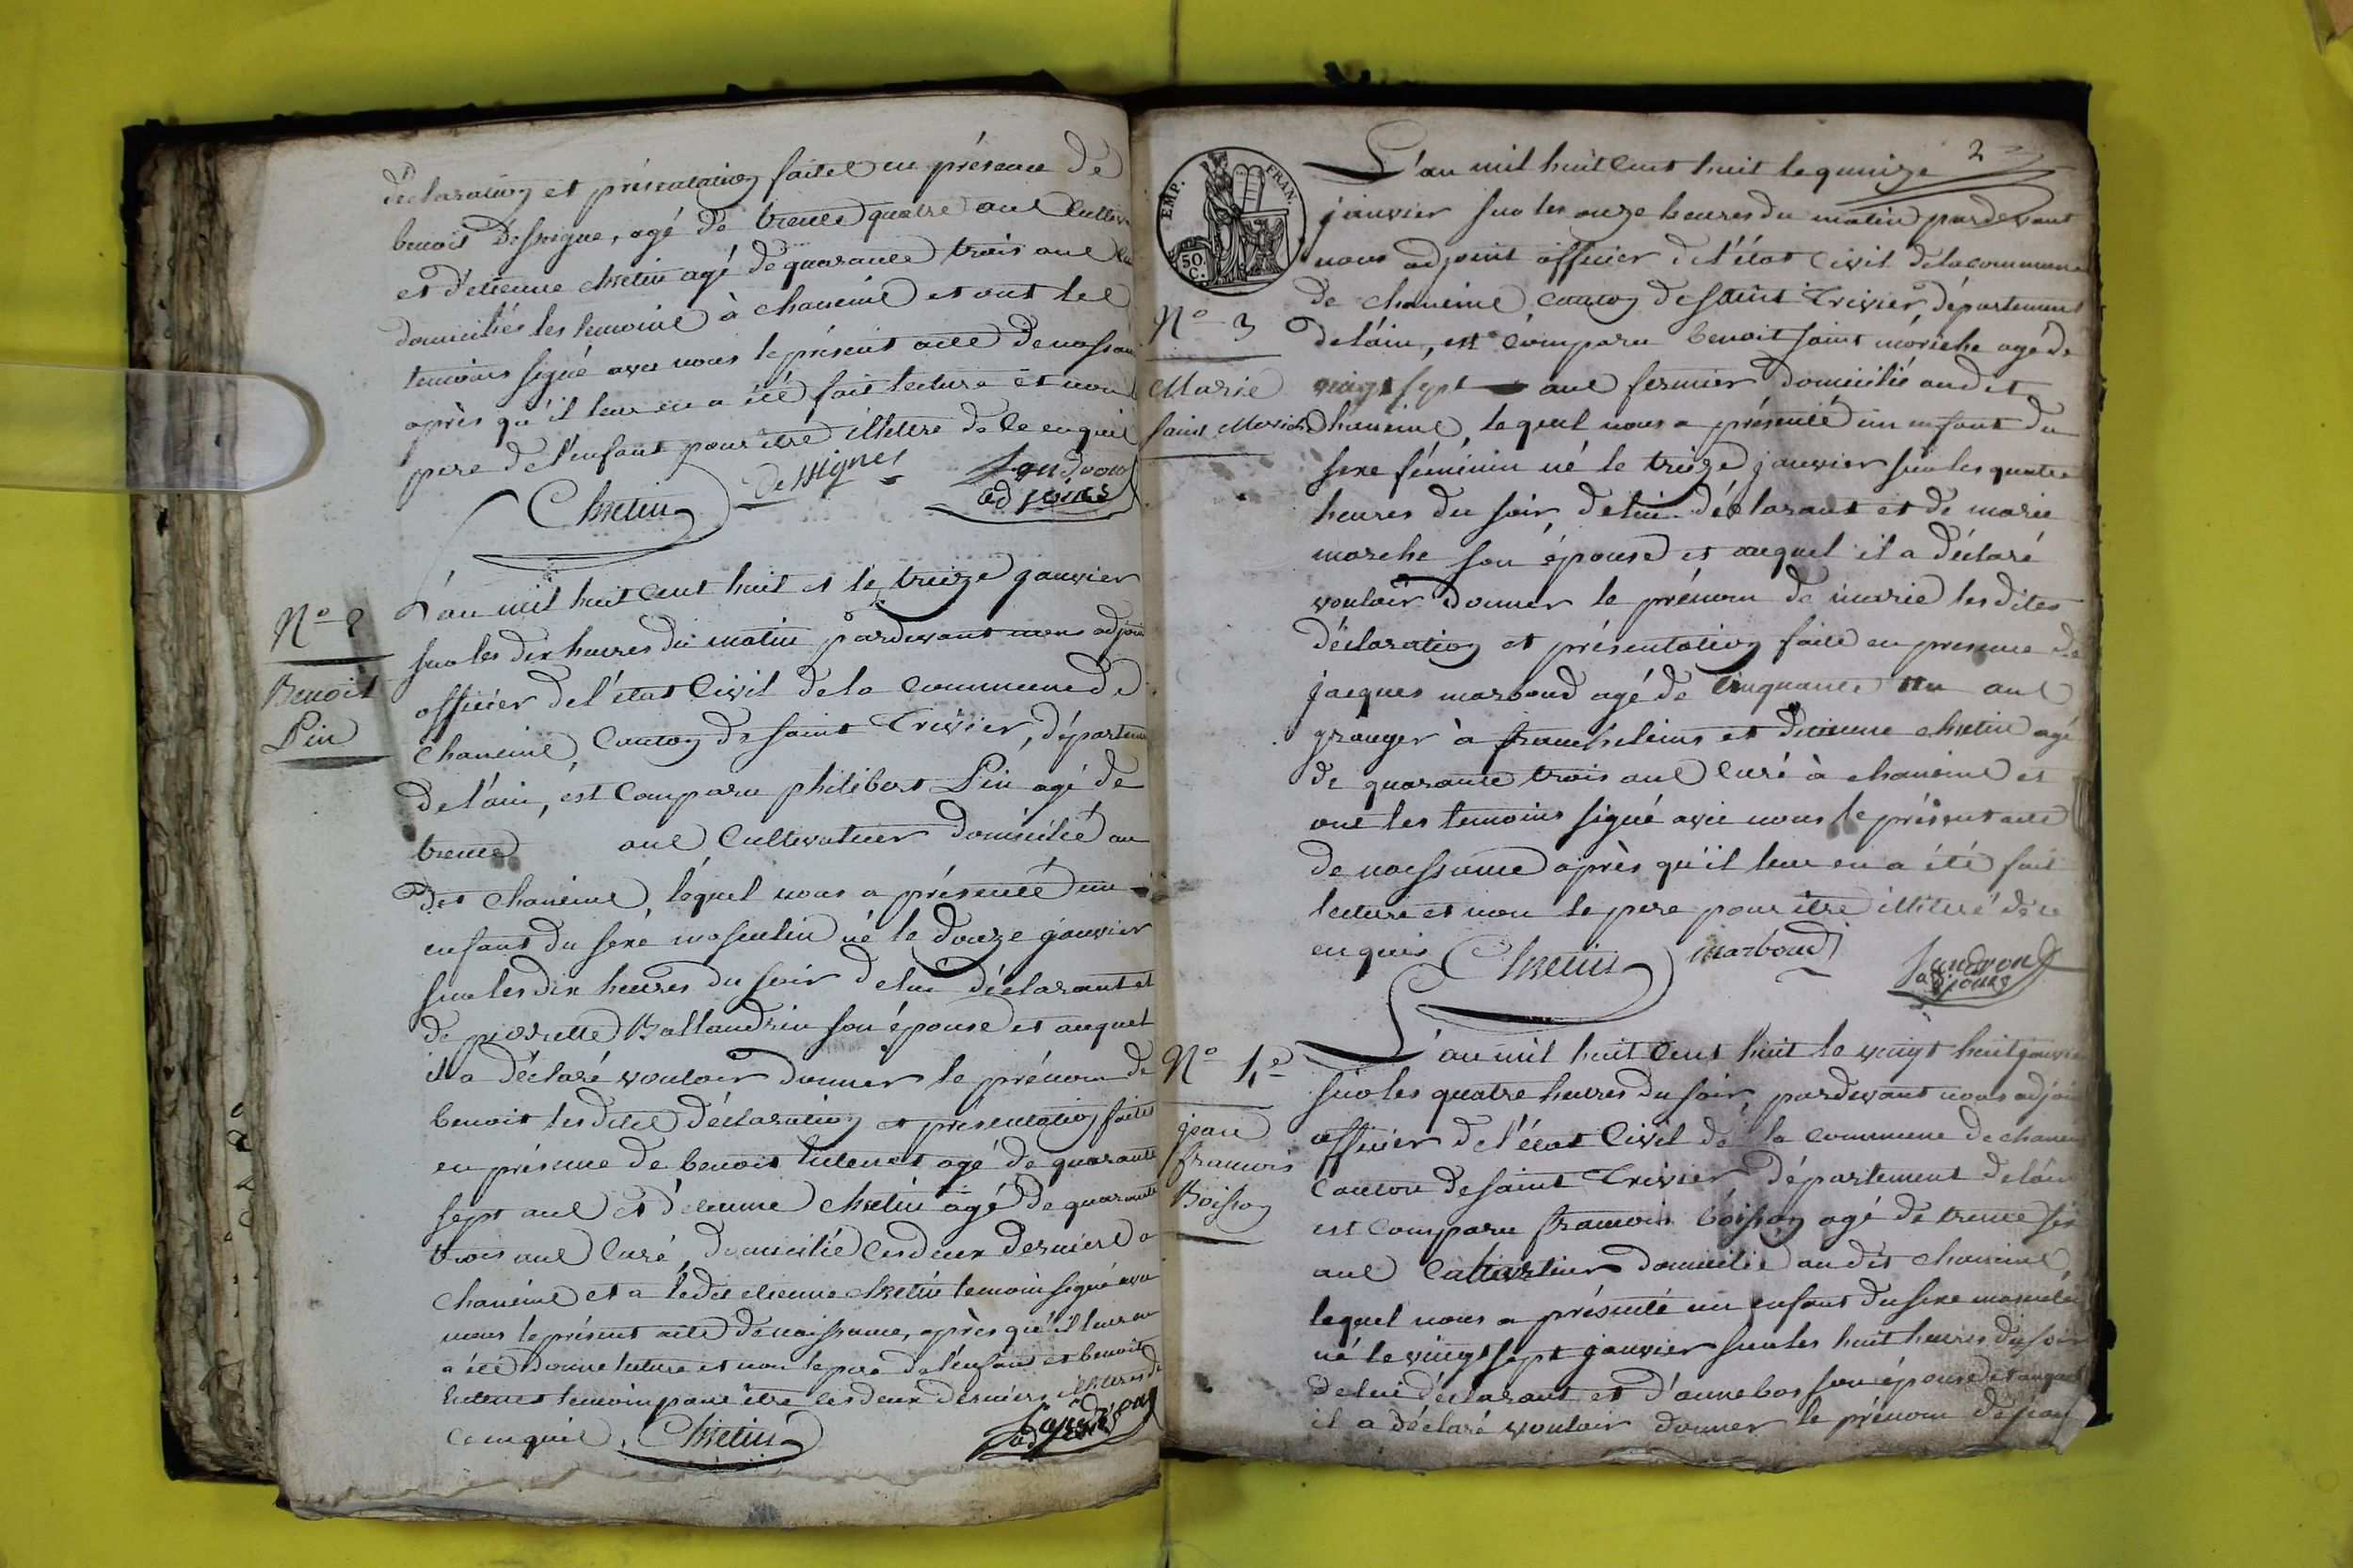 declaration et présentation faitte en présence de
benoit Dessigne, agé de trente quatre ans
et d'etienne chretin agé de quarante trois ans
domiciliés les temoins à chaneins et ont les
temoins signé avec nous le présent acte de
après qu'il leur en a été fait lecture et non
pere de l'enfant pour etre illettré de ce enquis
Chretin dessignes adjoint
L'an mil huit cent huit et le treize janvier
N° 2
Benoit
Pin
sur les dix heures du matin pardevant nous
officier de l'état civil de la commune de
chaneins, canton de saint Trivier,
de l'ain, est comparu philibert Pin agé de
trente ans cultivateur domicilié au
dit chaneins, lequel nous a présenté un
enfant du sexe masculin né le douze janvier
sur les dix heures du soir de lui déclarant et
de pierrette Ballandrin son épouse et auquel
il a déclaré vouloir donner le prénom de
benoit les dites déclaration et présentation faites
en présence de benoit agé de quarante
sept ans et d'etienne chretin agé de quarante
trois ans curé, domicilié les deux derniers a
chaneins et a ledit etienne chretin temoin signé avec
nous le présent acte de naissance, après qu'il leur en
a été donné lecture et non le pere de l'enfant et benoit
temoin pour etre les deux derniers illettrés de
ce enquis. Chretin
2
EMP. FRAN.
50
C.
L'an mil huit cent huit le quinze
janvier sur les onze heures du matin pardevant
nous adjoint officier de l'état civil de la commune
de chaneins, canton de saint Trivier, département
N° 3
Marie
de l'ain, est comparu benoit saint moriche agé de
vingt sept ans fermier domicilié audit
chaneins, lequel nous a présenté un enfant du
sexe féminin né le treize janvier sur les quatre
heures du soir, de lui déclarant et de marie
marche son épouse et auquel il a déclaré
vouloir donner le prénom de marie les dites
déclaration et présentation faite en presence de
jacques marboud agé de cinquante un ans
granger à francheleins et d'etienne chretin agé
de quarante trois ans curé à chaneins et
ont les temoins signé avec nous le présent acte
de naissance après qu'il leur en a été fait
lecture et non le pere pour être illettré de ce
enquis Chretin marboud Jandron
adjoint
L'an mil huit cent huit le vingt huit
N° 4e
jean
francois
Boisson
sur les quatre heures du soir, pardevant nous
officier de l'état civil de la commune de
canton de saint Trivier département de l'ain
est comparu francois boisson agé de trente six
ans cultivateur domicilié au dit chaneins,
lequel nous a présenté un enfant du sexe masculin
né le vingt sept janvier sur les huit heures du soir
de lui déclarant et d'anne bos son épouse et auquel
il a déclaré vouloir donner le prénom de